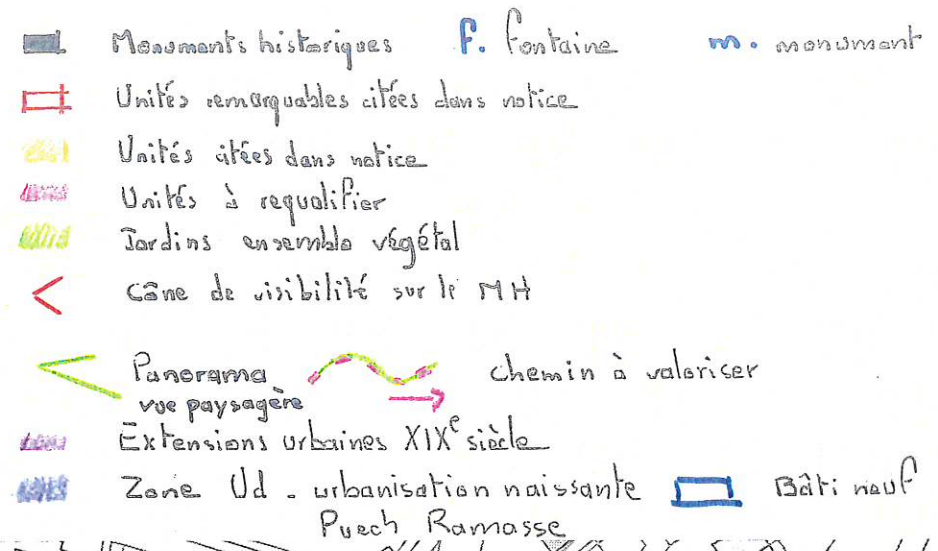 Monuments historiques F. fontaine m. monument
Unités remarquables citées dans notice
Unités citées dans notice
Unités à requalifier
Jardins ensemble végétal
Cône de visibilité sur le MH
Panorama chemin à valoriser
vue paysagère
Extensions urbaines XIXe siècle
Zone Ud - urbanisation naissante Bâti neuf
Puech Ramasse